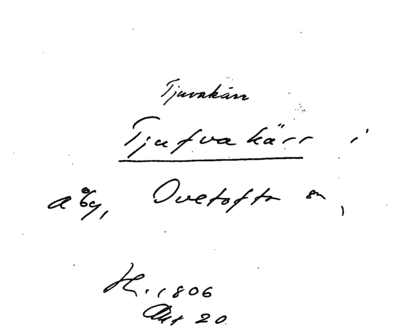 Tjuvakärr
Tjufvakärr i
åby, Ovetofta sn,
H. 1806
Akt 20